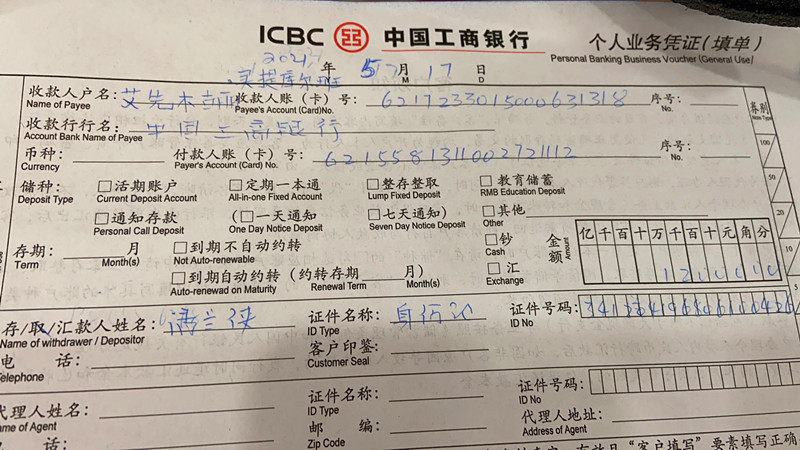 ICBC 中国工商银行 个人业务凭证(填单)
Personal Banking Business Voucher (General Use)
2021 年 月 17 日
M D
收款人户名: 收款人账(卡)号: 6217233015000631318 序号:
Name of Payee Payee's Account (Card)No. No.
收款行行名: 中国工商银行
Account Bank Name of Payee
币种: 付款人账(卡)号: 6215581311002721112 序号:
Currency Payer's Account (Card) No. No.
券别
Note Type
100
50
20
10
5
储种: □活期账户 □定期一本通 □整存整取 □教育储蓄
Deposit Type Current Deposit Account All-in-one Fixed Account Lump Fixed Deposit RMB Education Deposit
□通知存款 (□一天通知 □七天通知) □其他
Personal Call Deposit One Day Notice Deposit Seven Day Notice Deposit Other
存期: 月 □到期不自动约转 □钞 金额 亿千百十万千百十元角分
Term Month(s) Not Auto-renewable Cash Amount
□到期自动约转(约转存期 月) □汇
Auto-renewad on Maturity Renewal Term Month(s) Exchange
存/取/汇款人姓名: 证件名称: 身份证 证件号码:
Name of withdrawer / Depositor ID Type ID No
电 话: 客户印鉴:
Telephone Customer Seal
证件名称: 证件号码:
ID Type ID No
代理人姓名: 邮 编: 代理人地址:
Name of Agent Zip Code Address of Agent
电 话:
"客户填写"要素填写正确